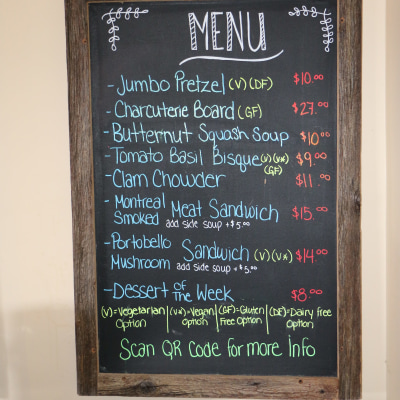 MENU
- Jumbo Pretzel (V) (DF) $10.00
- Charcuterie Board (GF) $27.00
- Butternut Squash Soup $10.00
- Tomato Basil Bisque (V) (V*) (GF) $9.00
- Clam Chowder $11.00
- Montreal Smoked Meat Sandwich $15.00
add side soup + $5.00
- Portobello Mushroom Sandwich (V) (V*) $14.00
add side soup + $5.00
- Dessert OF The Week $8.00
(V) = Vegetarian Option
(V*) = Vegan Option
(GF) = Gluten Free Option
(DF) = Dairy free Option
Scan QR Code for more Info